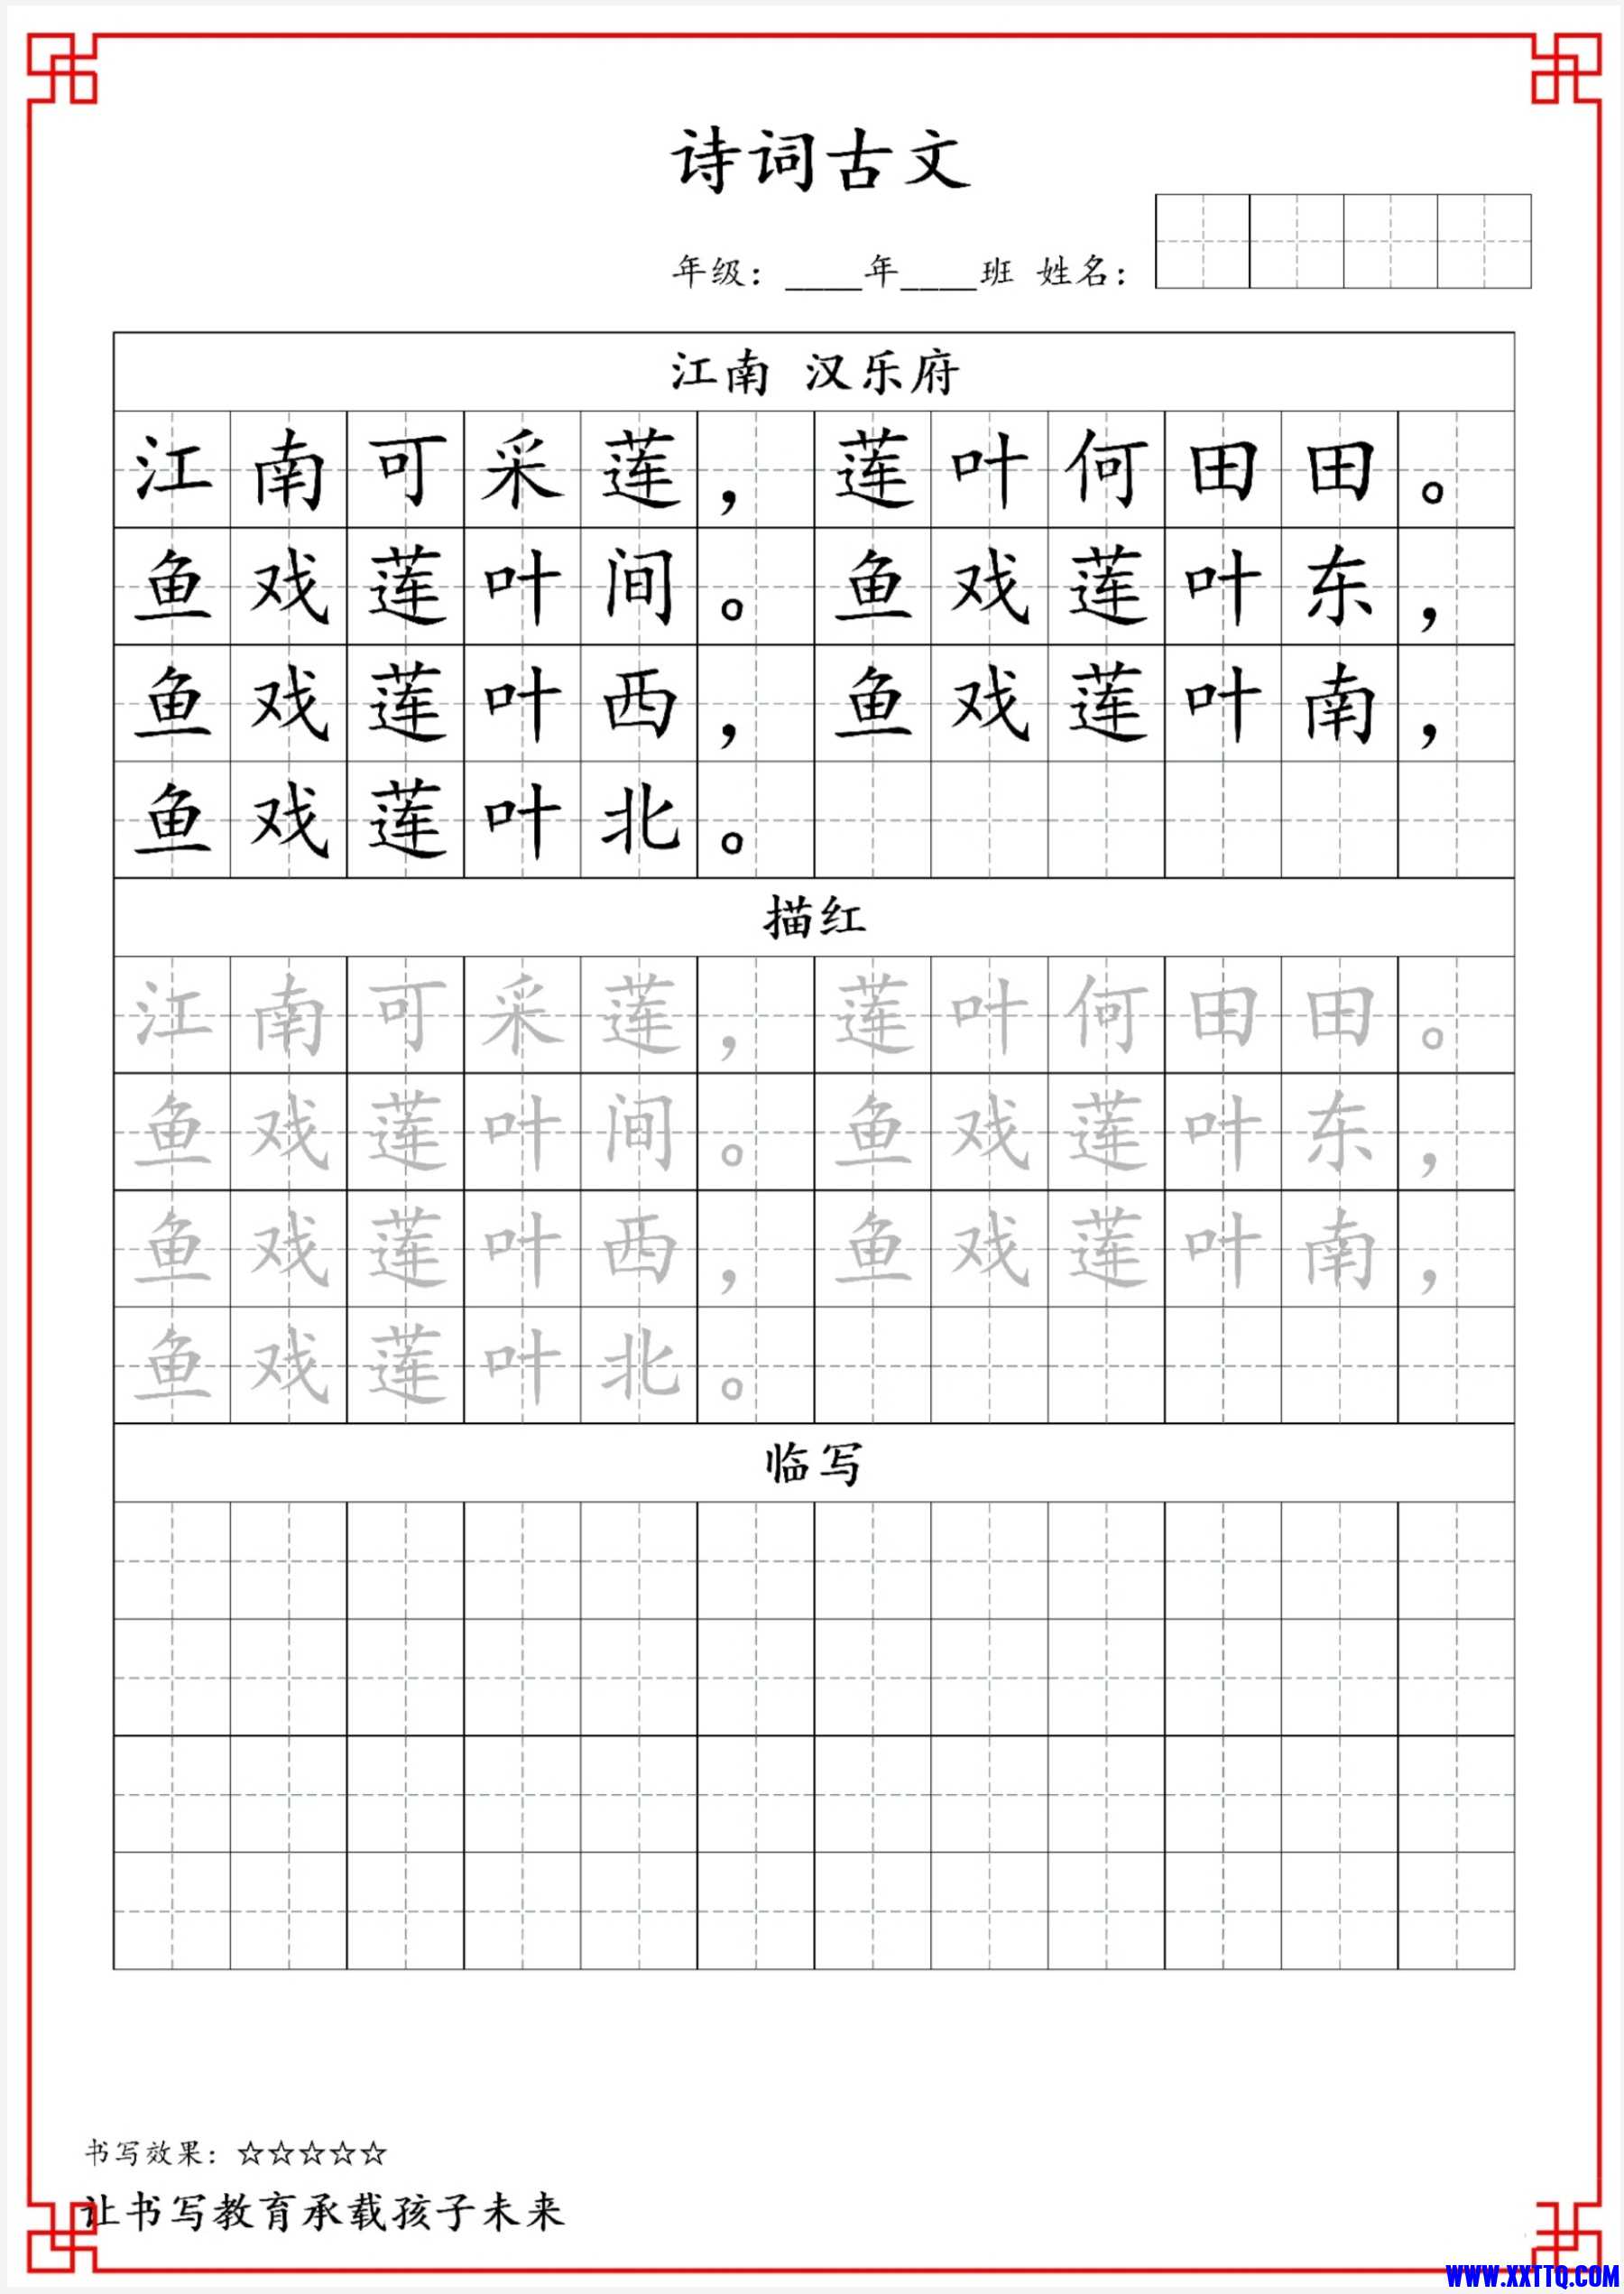 诗词古文
年级：____年____班 姓名：
江南 汉乐府
江南可采莲，莲叶何田田。
鱼戏莲叶间。鱼戏莲叶东，
鱼戏莲叶西，鱼戏莲叶南，
鱼戏莲叶北。
描红
江南可采莲，莲叶何田田。
鱼戏莲叶间。鱼戏莲叶东，
鱼戏莲叶西，鱼戏莲叶南，
鱼戏莲叶北。
临写
书写效果：☆☆☆☆☆
让书写教育承载孩子未来
WWW.XXTTQ.COM